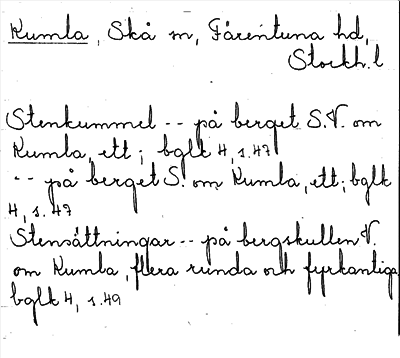 Kumla, Skå sn, Färentuna hd,
Stockh. l
Stenkummel -- på berget S.V. om
Kumla, ett; bglk 4, s. 47
-- på berget S. om Kumla, ett; bglk
4, s. 47
Stensättningar -- på bergskullen V.
om Kumla, flera runda och fyrkantiga
bglk 4, s. 49